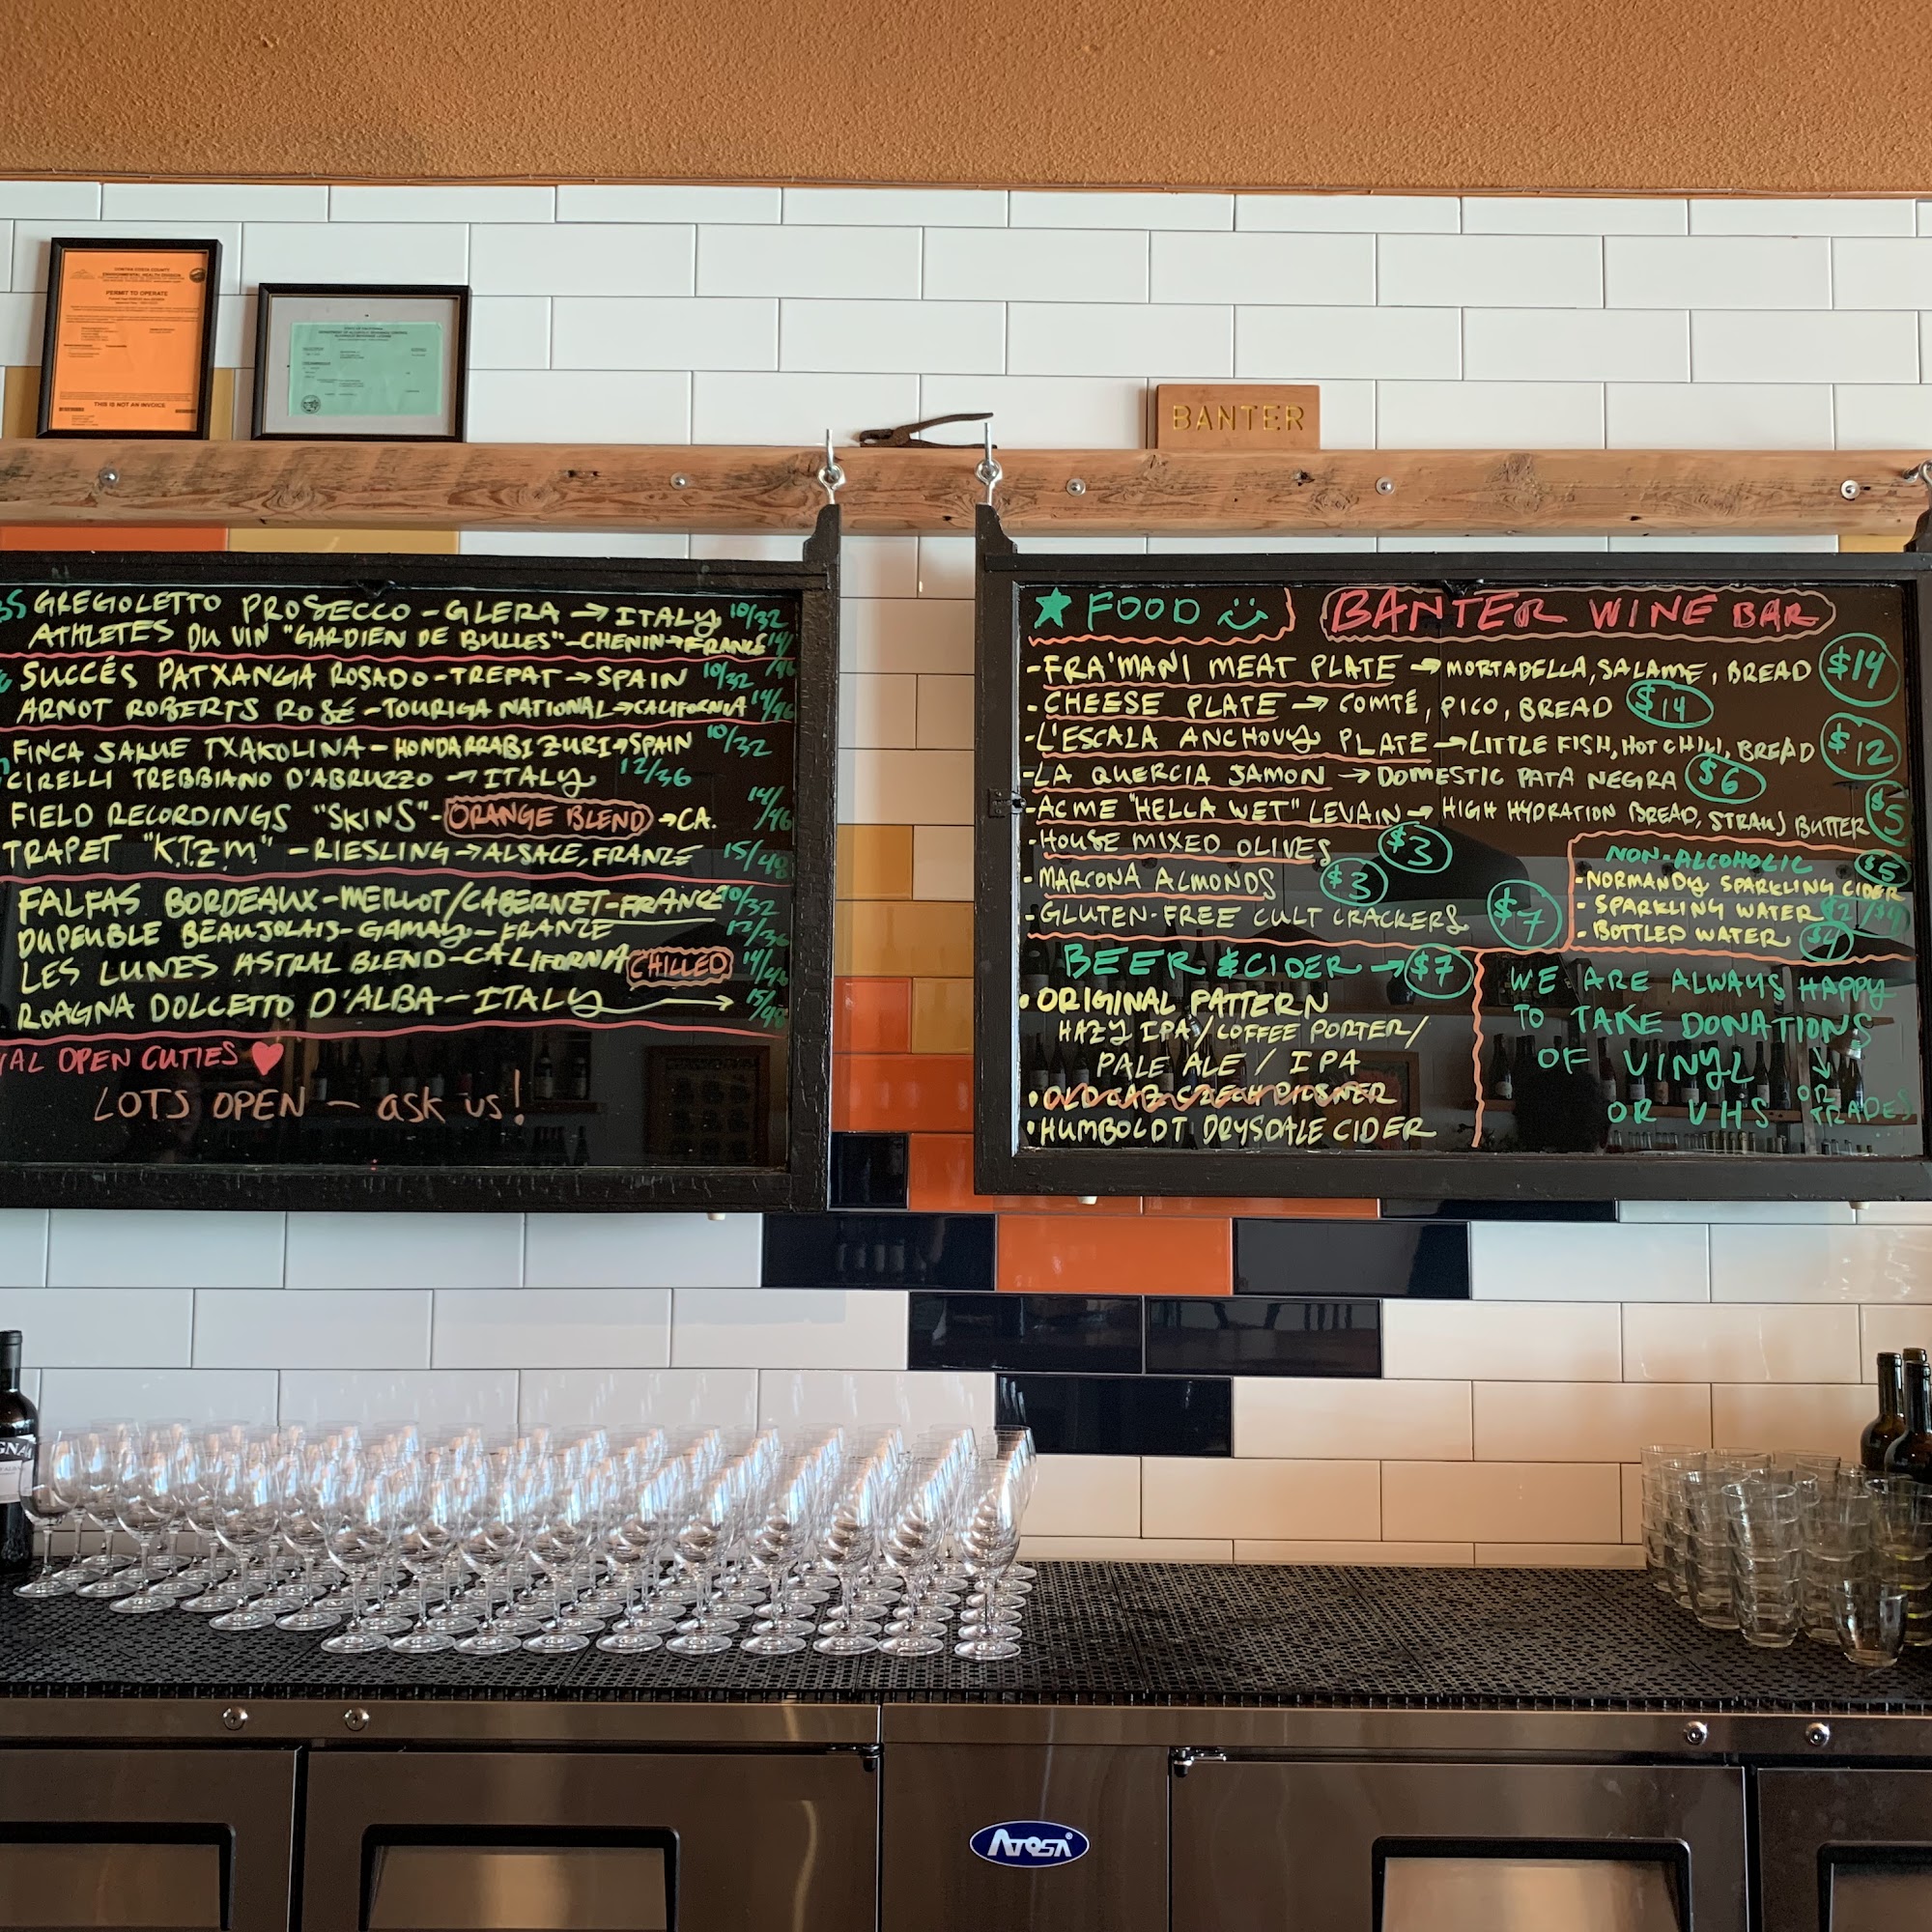 CONTRA COSTA COUNTY
ENVIRONMENTAL HEALTH DIVISION
PERMIT TO OPERATE
THIS IS NOT AN INVOICE
STATE OF CALIFORNIA
DEPARTMENT OF ALCOHOLIC BEVERAGE CONTROL
ALCOHOLIC BEVERAGE LICENSE
BANTER
GREGOLETTO PROSECCO - GLERA → ITALY 10/32
ATHLETES DU VIN "GARDIEN DE BULLES" - CHENIN → FRANCE 14/46
SUCCÉS PATXANGA ROSADO - TREPAT → SPAIN 10/32
ARNOT ROBERTS ROSÉ - TOURIGA NATIONAL → CALIFORNIA 14/46
FINCA JAKUE TXAKOLINA - HONDARRABI ZURI → SPAIN 10/32
CIRELLI TREBBIANO D'ABRUZZO → ITALY 12/36
FIELD RECORDINGS "SKINS" - ORANGE BLEND → CA. 14/46
TRAPET "K.T.Z.M." - RIESLING → ALSACE, FRANCE 15/48
FALFAS BORDEAUX - MERLOT/CABERNET - FRANCE 10/32
DUPEUBLE BEAUJOLAIS - GAMAY - FRANCE 12/36
LES LUNES ASTRAL BLEND - CALIFORNIA CHILLED 14/46
ROAGNA DOLCETTO D'ALBA - ITALY → 15/48
OPEN CUTIES ♥
LOTS OPEN - ask us!
★ FOOD BANTER WINE BAR
- FRA'MANI MEAT PLATE → MORTADELLA, SALAME, BREAD $14
- CHEESE PLATE → COMTÉ, PICO, BREAD $14
- L'ESCALA ANCHOVY PLATE → LITTLE FISH, HOT CHILI, BREAD $12
- LA QUERCIA JAMON → DOMESTIC PATA NEGRA $6
- ACME "HELLA WET" LEVAIN → HIGH HYDRATION BREAD, STRAUS BUTTER $5
- HOUSE MIXED OLIVES $3
- MARCONA ALMONDS $3
- GLUTEN-FREE CULT CRACKERS $7
NON-ALCOHOLIC
- NORMANDY SPARKLING CIDER $5
- SPARKLING WATER $2/$4
- BOTTLED WATER $4
BEER & CIDER → $7
• ORIGINAL PATTERN
HAZY IPA / COFFEE PORTER /
PALE ALE / IPA
• OLD CAZ CZECH PILSNER
• HUMBOLDT DRYSDALE CIDER
WE ARE ALWAYS HAPPY
TO TAKE DONATIONS
OF VINYL
OR VHS
OR
TRADES
ATOSA